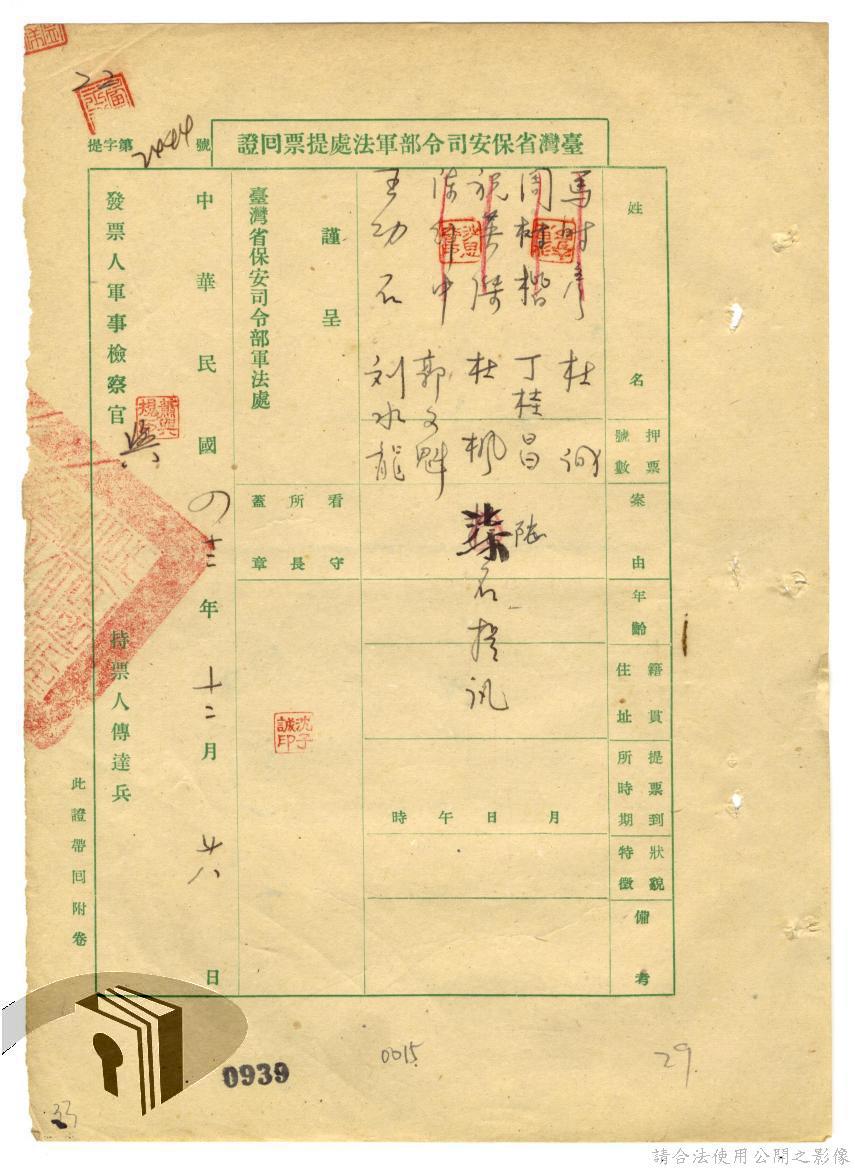 臺灣省保安司令部軍法處提票回證
提字第2444號
姓名
押票號數
案由
年齡
籍貫住址
提票到所時期
狀貌特徵
備考
馬 杜
周 楷 丁桂昌 陸
祝英傑 杜楓 名提訊
陳 中 郭文魁
王功石 刘水龍
月 日 午 時
謹呈
臺灣省保安司令部軍法處
看守所長蓋章
沈子誠印
中華民國四十三年十二月廿八日
發票人軍事檢察官
持票人傳達兵
此證帶回附卷
22
0939
0015
29
33
請合法使用公開之影像